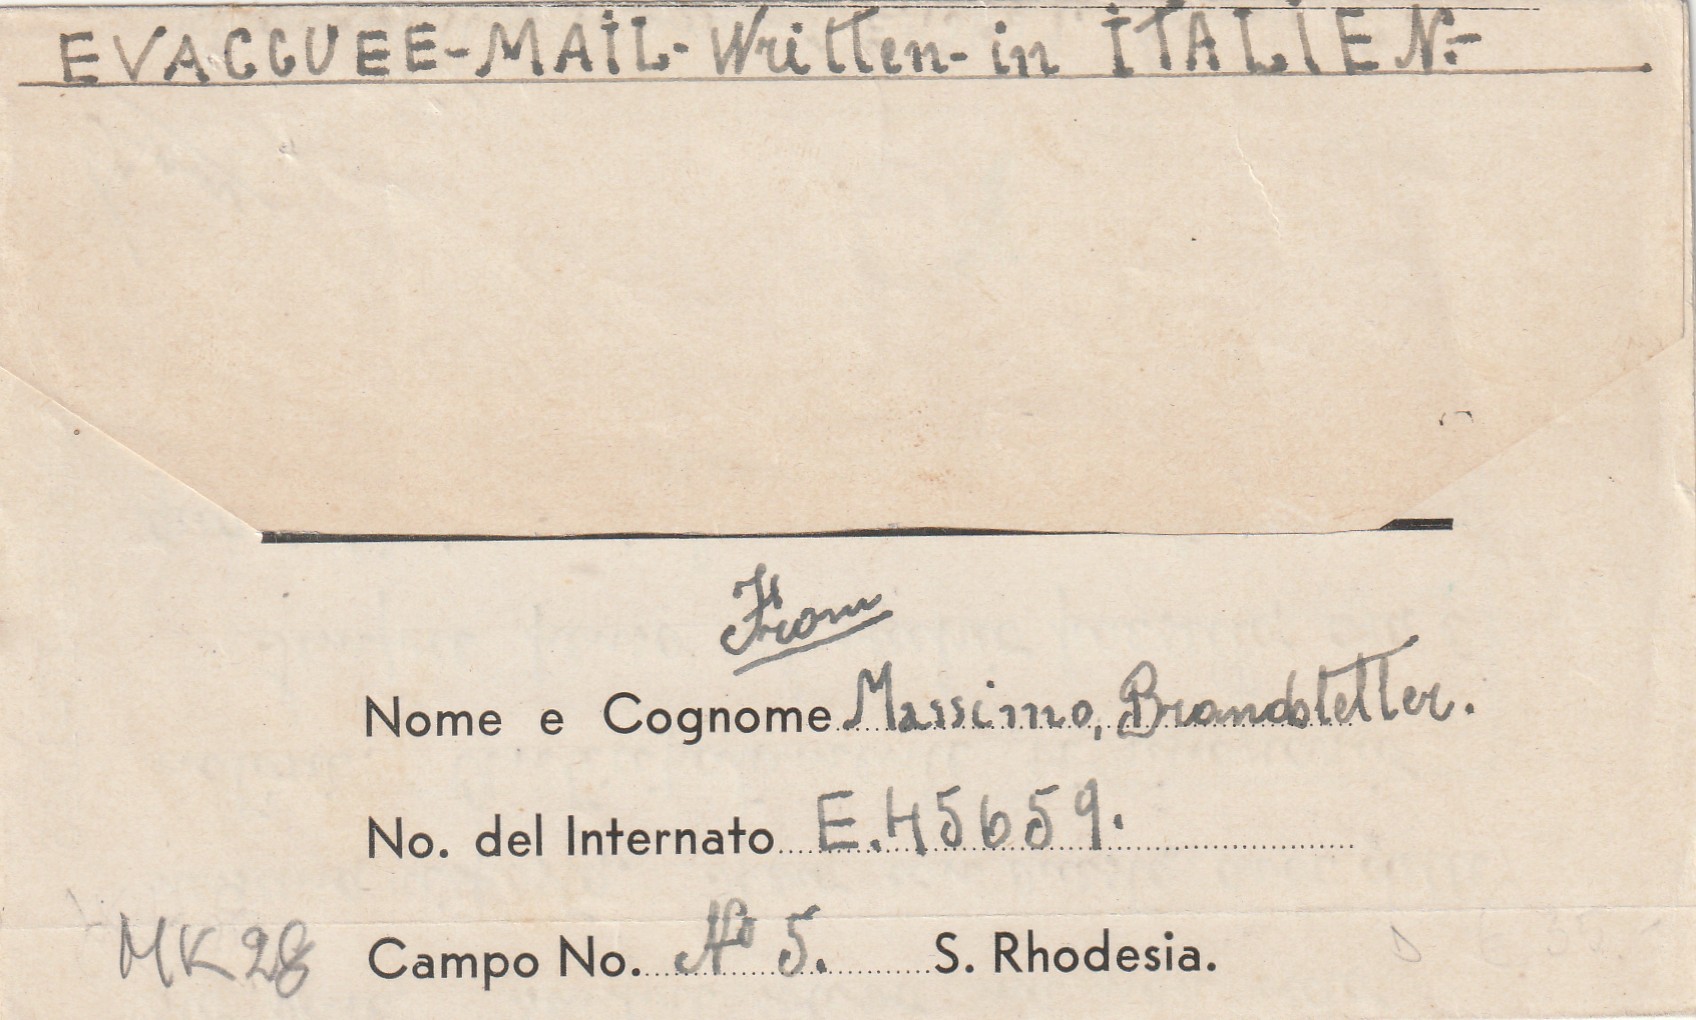 EVACCUEE-MAIL-Written-in ITALIEN.-
From
Nome e Cognome Massimo, Brandstetter.
No. del Internato E.45659.
MK28 Campo No. No 5. S. Rhodesia.